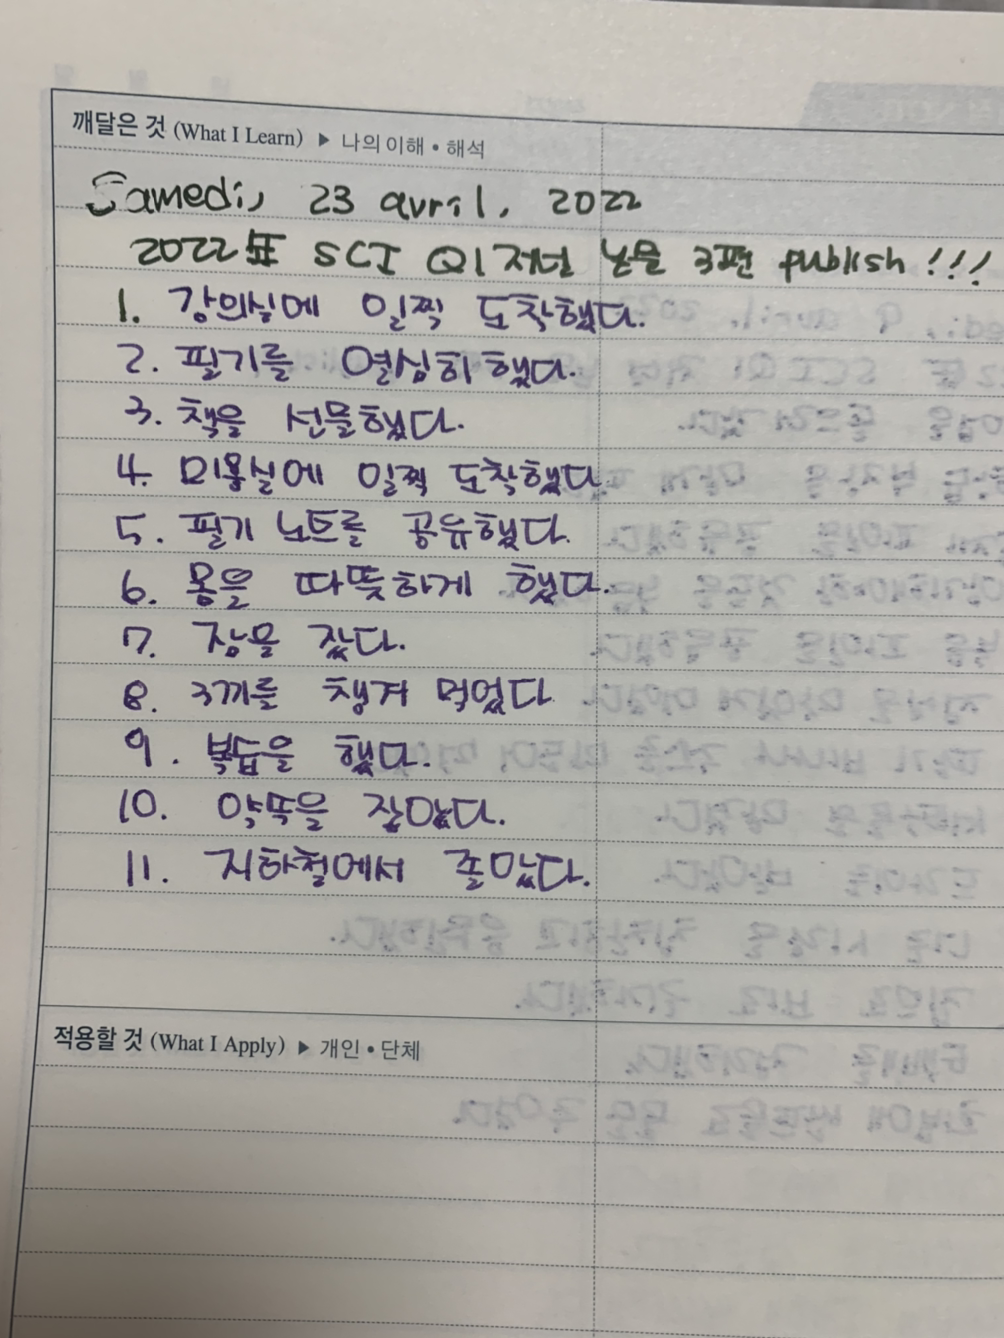 깨달은 것 (What I Learn) ▶ 나의 이해 • 해석
Samedi, 23 avril, 2022
2022 SCI Q1 저널 논문 3편 publish!!!
1. 강의실에 일찍 도착했다.
2. 필기를 열심히 했다.
3. 책을 선물했다.
4. 미용실에 일찍 도착했다
5. 필기 노트를 공유했다.
6. 몸을 따뜻하게 했다.
7. 잠을 잤다.
8. 3끼를 챙겨 먹었다
9. 복습을 했다.
10. 약속을 잡았다.
11. 지하철에서 졸았다.
적용할 것 (What I Apply) ▶ 개인 • 단체